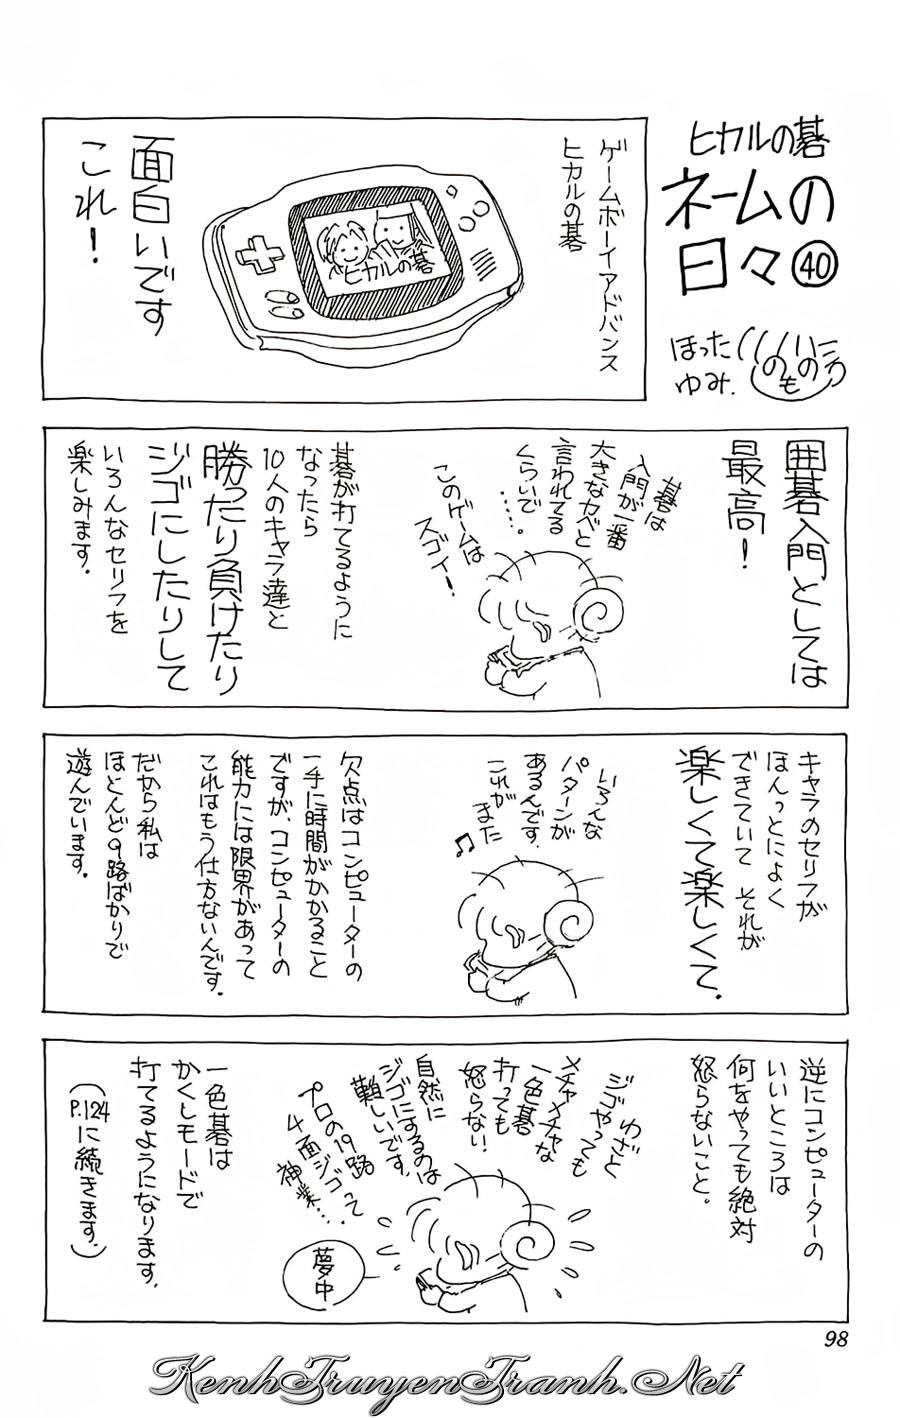 ヒカルの碁
ネームの
日々㊵
ほった
ゆみ.
ゲームボーイアドバンス
ヒカルの碁
ヒカルの碁
面白いです
これ！
囲碁入門としては
最高！
碁は
入門が一番
大きなカベと
言われてる
くらいで
……。
このゲームは
スゴイ！
碁が打てるように
なったら
10人のキャラ達と
勝ったり負けたり
ジゴにしたりして
いろんなセリフを
楽しみます.
キャラのセリフが
ほんっとによく
できていて それが
楽しくて楽しくて.
いろんな
パターンが
あるんです.
これが
また
♫
欠点はコンピューターの
一手に時間がかかること
ですが、コンピューターの
能力には限界があって
これはもう仕方ないんです.
だから私は
ほとんど9路ばかりで
遊んでいます.
逆にコンピューターの
いいところは
何をやっても絶対
怒らないこと。
わざと
ジゴやっても
メチャメチャな
一色碁
打っても
怒らない.
自然に
ジゴにするのは
難しいです.
プロの19路
4面ジゴって
神業….
夢中
一色碁は
かくしモードで
打てるようになります.
(P.124に続きます.)
98
KenhTruyenTranh.Net